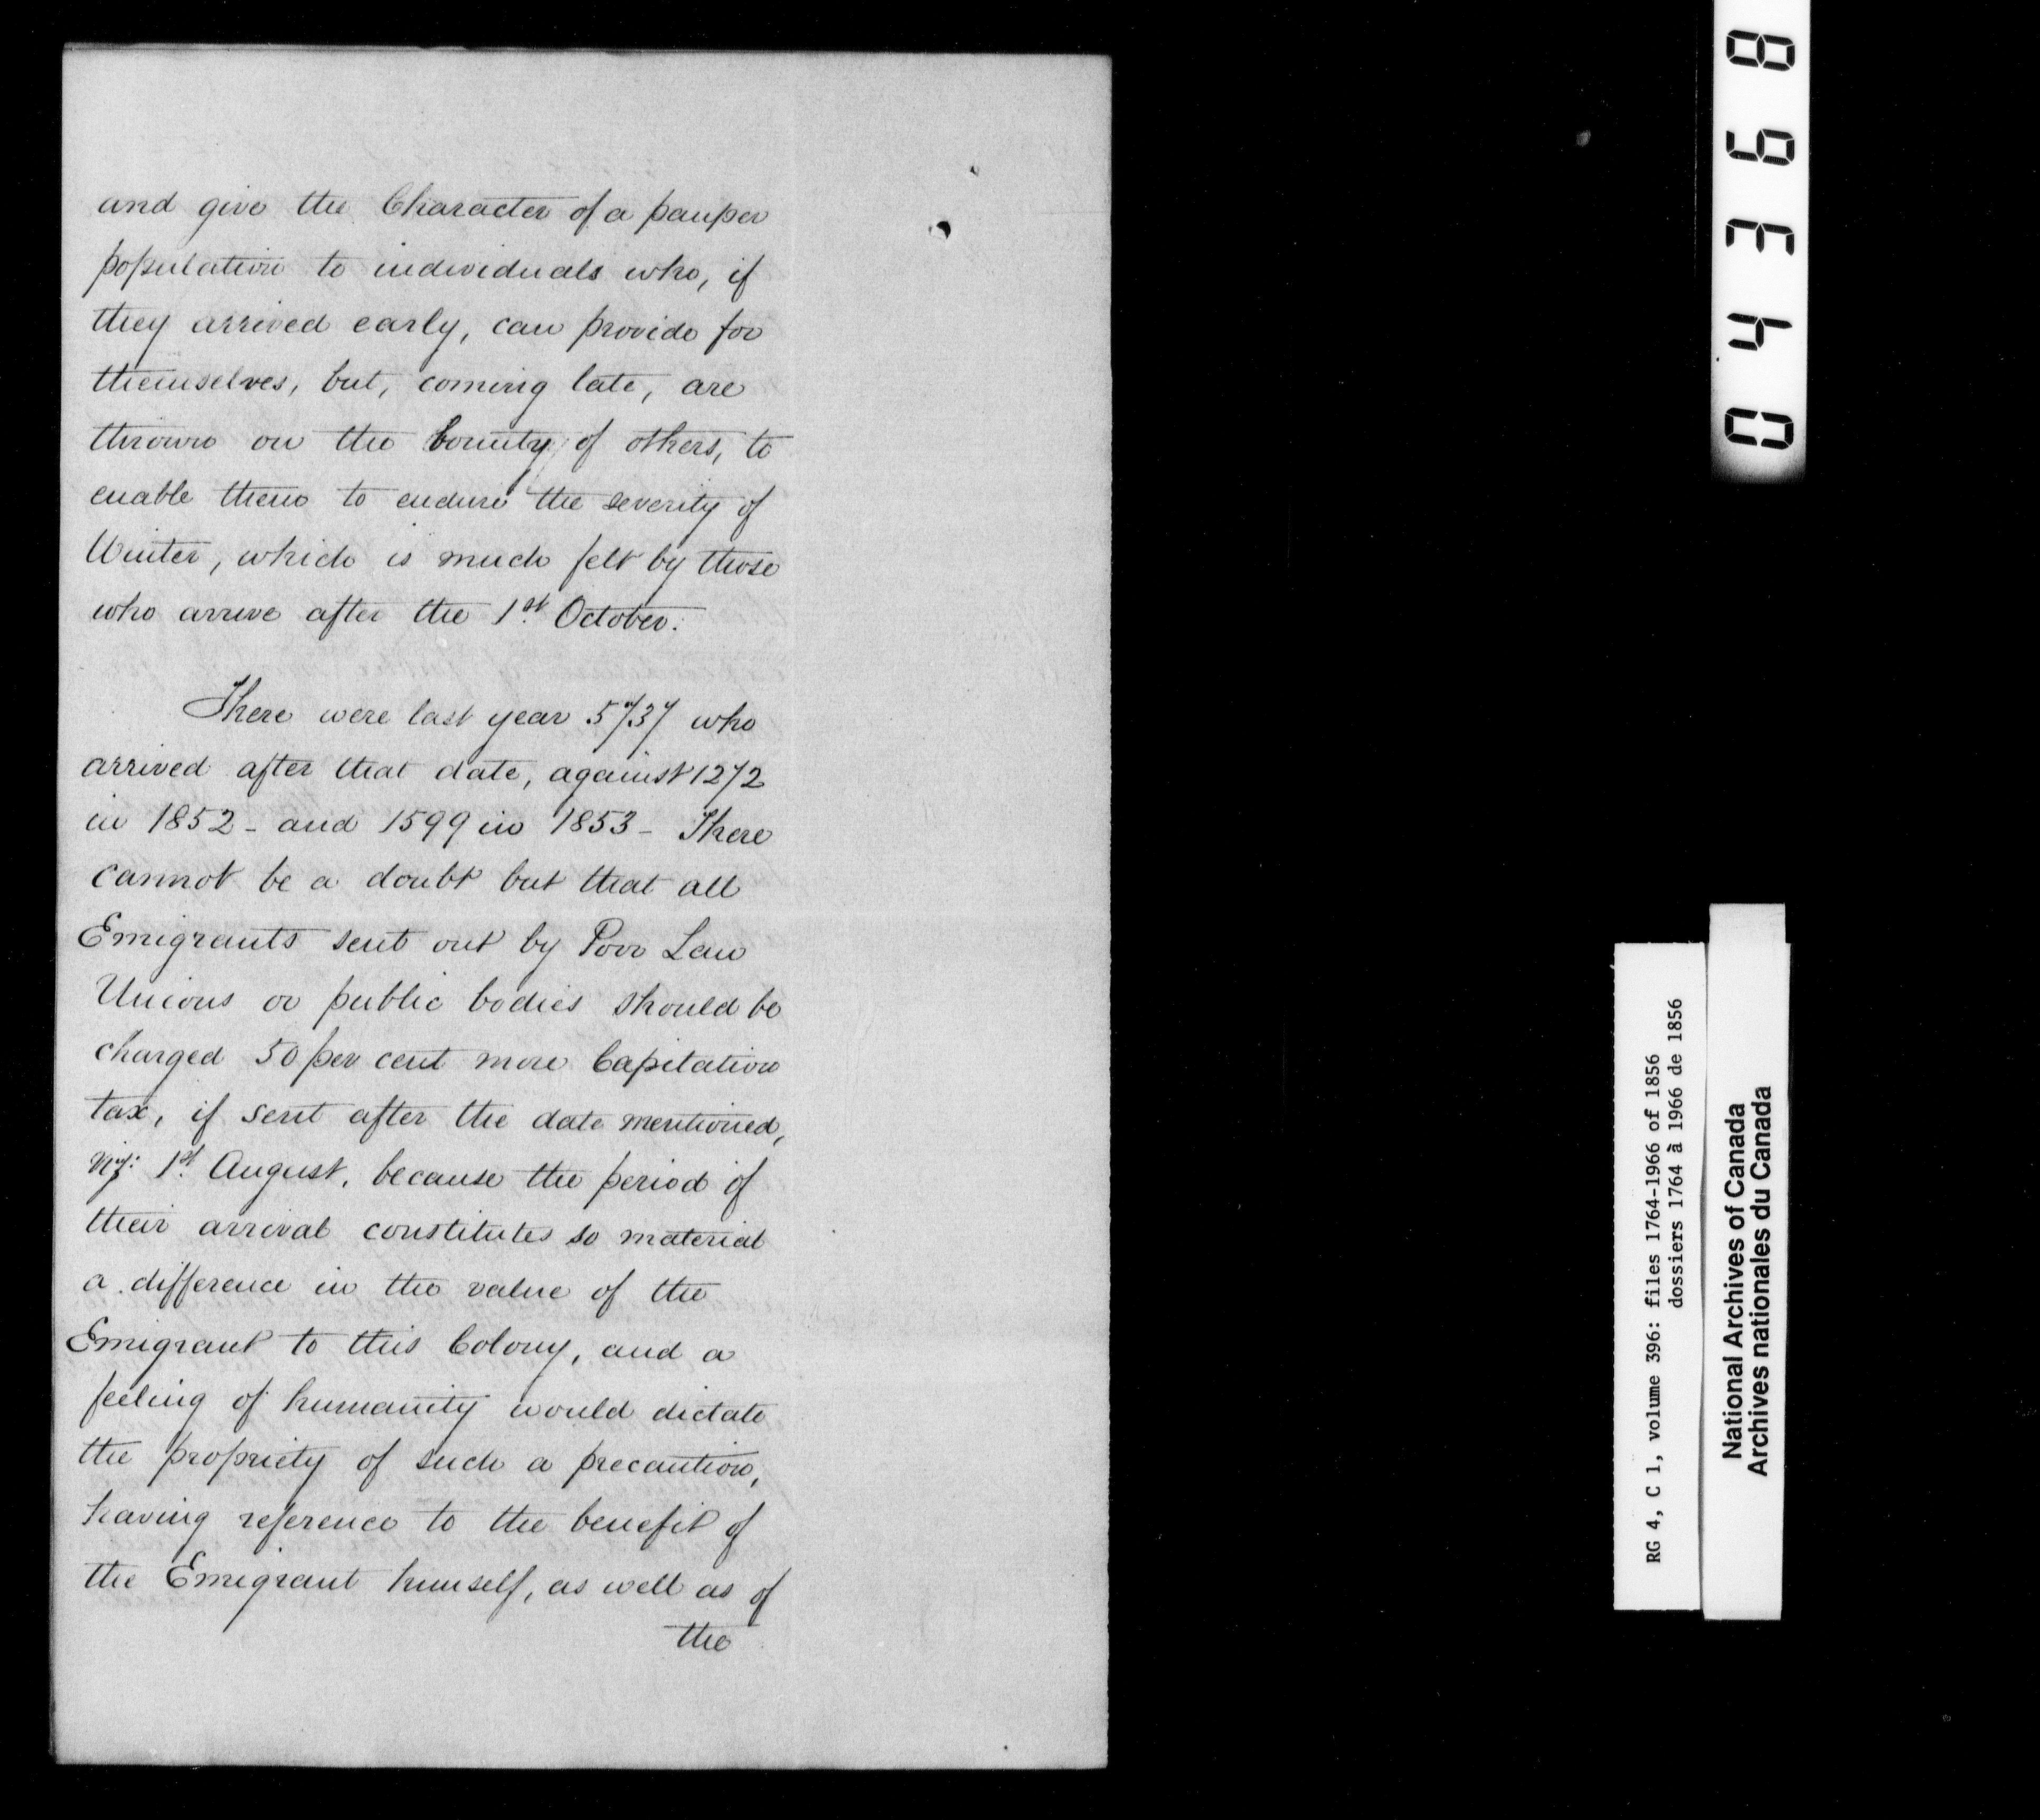 and give the Character of a pauper
population to individuals who, if
they arrived early, can provide for
themselves, but, coming late, are
thrown on the bounty of others, to
enable them to endure the severity of
Winter, which is much felt by those
who arrive after the 1st October.
There were last year 5737 who
arrived after that date, against 1272
in 1852 - and 1599 in 1853 - There
cannot be a doubt but that all
Emigrants sent out by Poor Law
Unions or public bodies should be
charged 50 per cent more Capitation
tax, if sent after the date mentioned,
1st August, because the period of
their arrival constitutes so material
a difference in the value of the
Emigrant to this Colony, and a
feeling of humanity would dictate
the propriety of such a precaution,
having reference to the benefit of
the Emigrant himself, as well as of
the
04368
RG 4, C 1, volume 396: files 1764-1966 of 1856
dossiers 1764 à 1966 de 1856
National Archives of Canada
Archives nationales du Canada